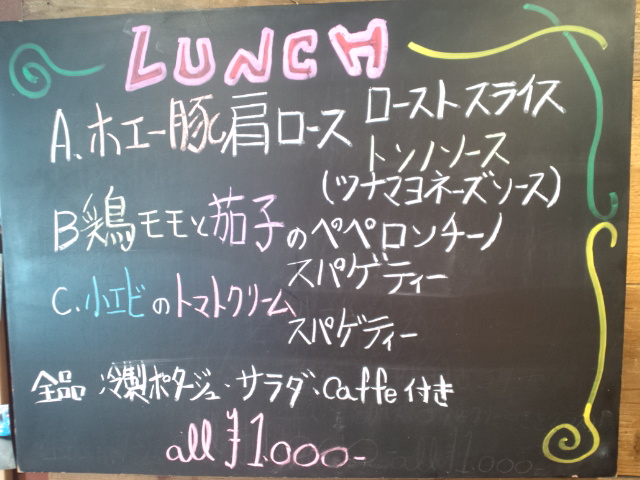 LUNCH
A.ホエー豚肩ロース ローストスライス
トンノソース
(ツナマヨネーズソース)
B鶏モモと茄子のペペロンチーノ
スパゲティー
C.小エビのトマトクリーム
スパゲティー
全品 冷製ポタージュ・サラダ、Caffe付き
all ¥1.000-